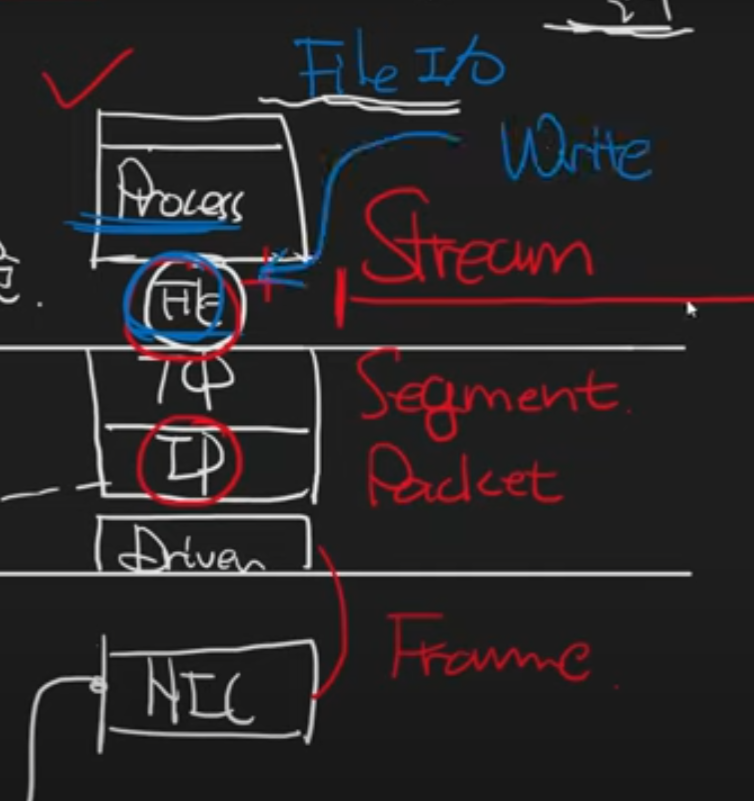 File I/O
Write
Process
Stream
File
TCP
Segment.
IP
Packet
Driver
Frame.
NIC